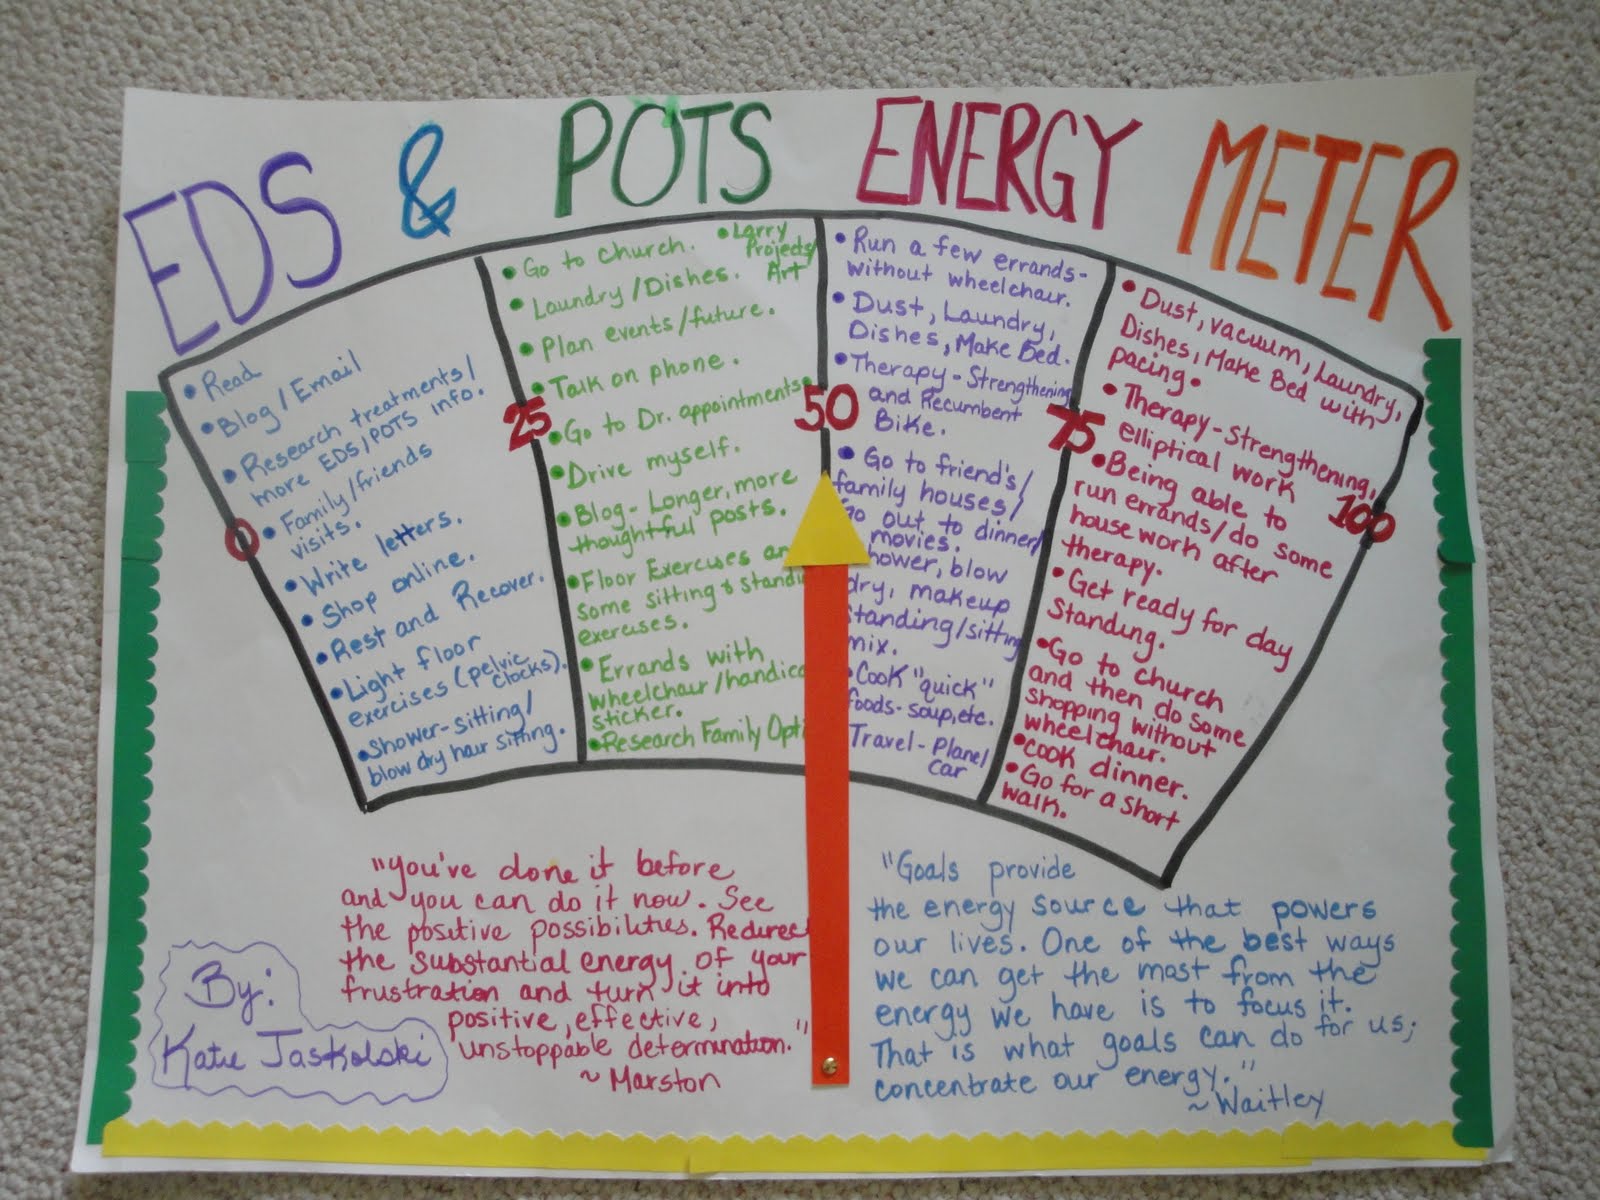 EDS & POTS ENERGY METER
0
• Read
• Blog/Email
• Research treatments/
more EDS/POTS info.
• Family/friends
visits.
• Write letters.
• Shop online.
• Rest and Recover.
• Light floor
exercises (pelvic
clocks).
• Shower-sitting/
blow dry hair sitting.
25
• Go to church.
• Larry
Projects/
Art
• Laundry/Dishes.
• Plan events/future.
• Talk on phone.
• Go to Dr. appointments.
• Drive myself.
• Blog-Longer, more
thoughtful posts.
• Floor Exercises an
some sitting & standi
exercises.
• Errands with
wheelchair/handica
sticker.
• Research Family Opti
50
• Run a few errands-
without wheelchair.
• Dust, Laundry,
Dishes, Make Bed.
• Therapy-Strengthening
and Recumbent
Bike.
• Go to friend's/
family houses/
Go out to dinner/
movies.
hower, blow
dry, makeup
standing/sitting
mix.
• Cook "quick"
foods-soup, etc.
Travel-Plane/
car
75
• Dust, vacuum, Laundry,
Dishes, Make Bed with
pacing.
• Therapy-Strengthening,
elliptical work
• Being able to
run errands/do some
house work after
therapy.
• Get ready for day
Standing.
• Go to church
and then do some
shopping without
wheelchair.
• Cook dinner.
• Go for a short
walk.
100
"You've done it before
and you can do it now. See
the positive possibilities. Redirect
the substantial energy of your
frustration and turn it into
positive, effective,
unstoppable determination."
~ Marston
"Goals provide
the energy source that powers
our lives. One of the best ways
we can get the most from the
energy we have is to focus it.
That is what goals can do for us;
concentrate our energy."
~ Waitley
By:
Katie Jaskolski